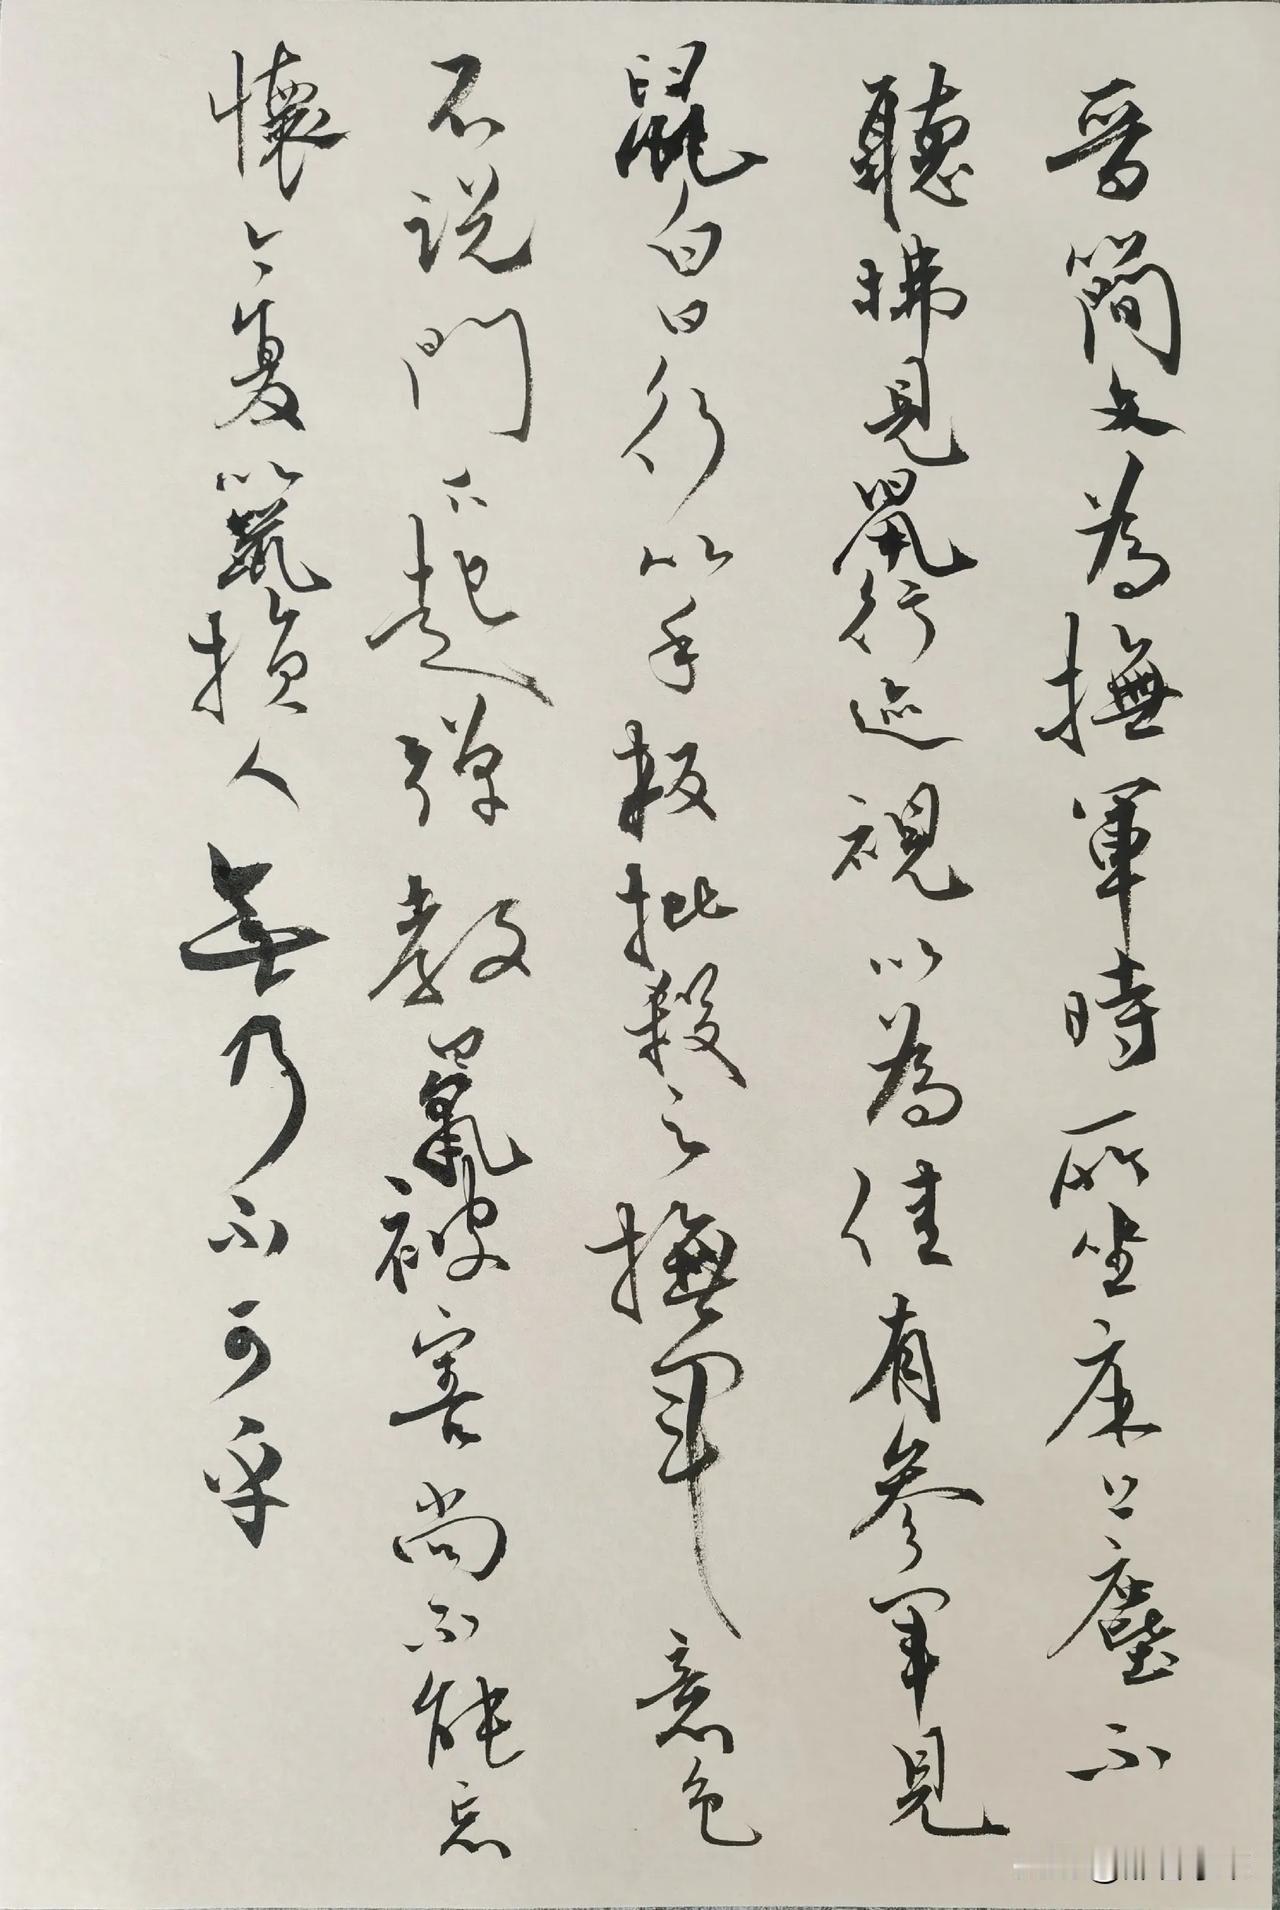 晉簡文為撫軍時所坐床上塵不
聽拂見鼠行迹視以為佳有參軍見
鼠白日行以手板批殺之撫軍意色
不說門下起彈教鼠被害尚不能忘
懷今復以鼠損人無乃不可乎